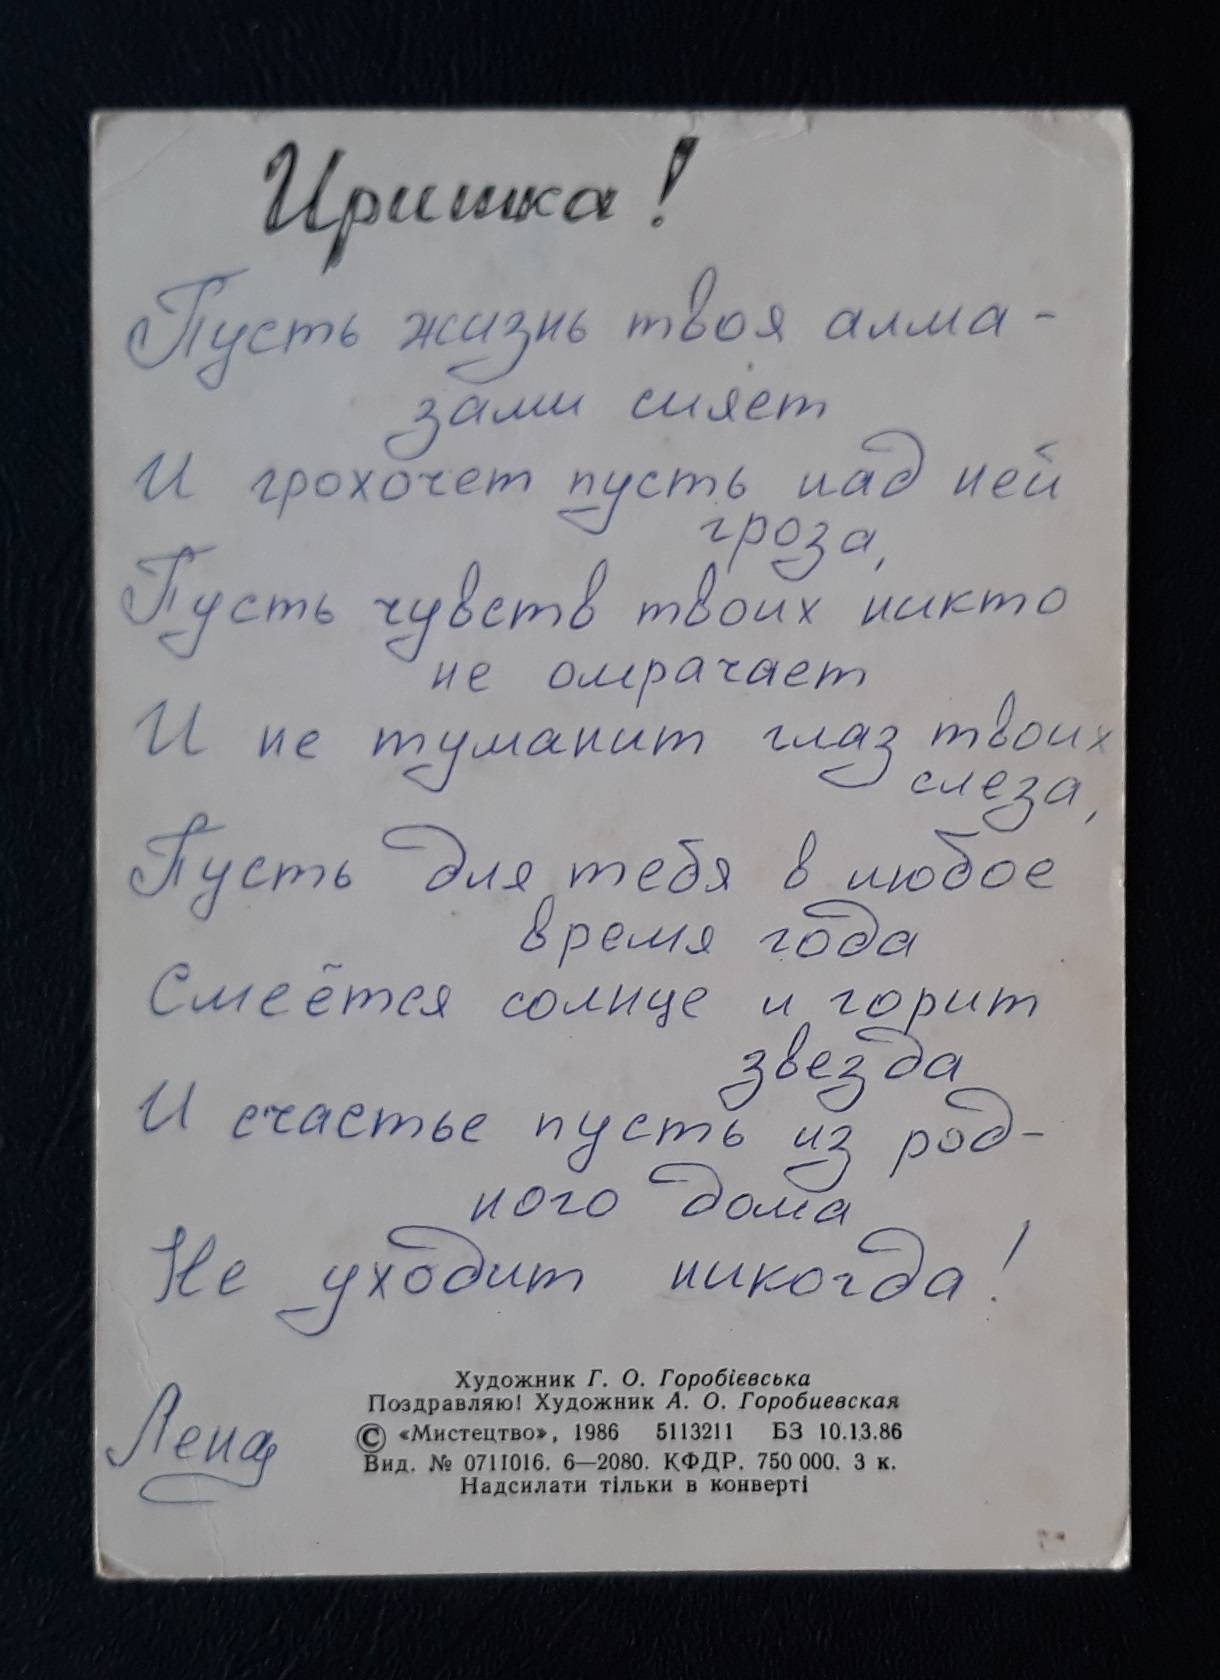 Иришка!
Пусть жизнь твоя алма-
зами сияет
И грохочет пусть над ней
гроза,
Пусть чувств твоих никто
не омрачает
И не туманит глаз твоих
слеза,
Пусть для тебя в любое
время года
Смеётся солнце и горит
звезда
И счастье пусть из род-
ного дома
Не уходит никогда!
Лена
Художник Г. О. Горобієвська
Поздравляю! Художник А. О. Горобиевская
© «Мистецтво», 1986 5113211 БЗ 10.13.86
Вид. № 0711016. 6—2080. КФДР. 750 000. 3 к.
Надсилати тільки в конверті